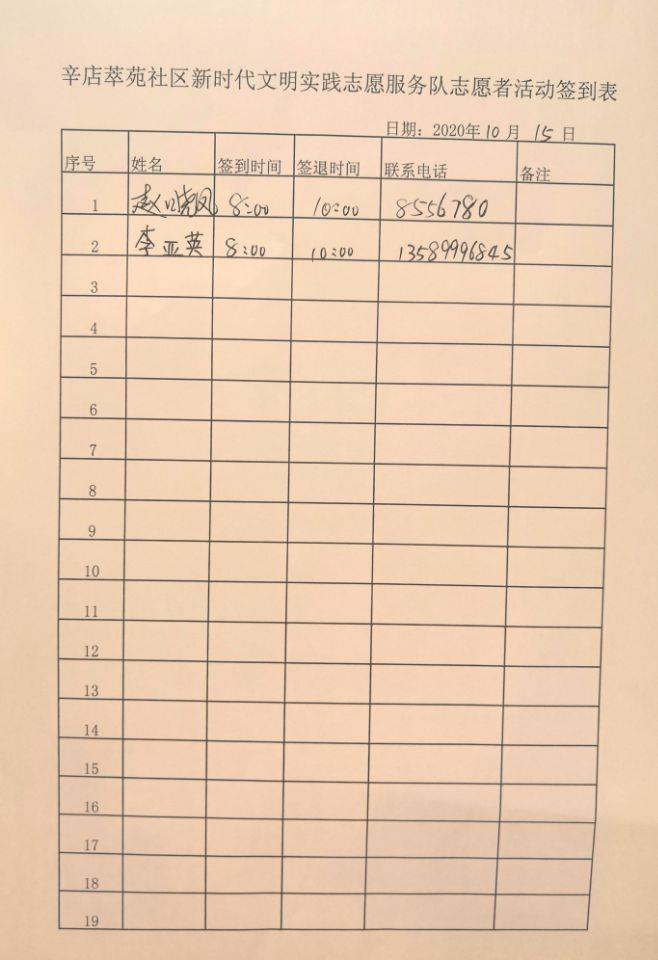 辛店萃苑社区新时代文明实践志愿服务队志愿者活动签到表
日期：2020年10月15日
序号 姓名 签到时间 签退时间 联系电话 备注
1 赵晓凤 8:00 10:00 8556780
2 李亚英 8:00 10:00 13589996845
3
4
5
6
7
8
9
10
11
12
13
14
15
16
17
18
19